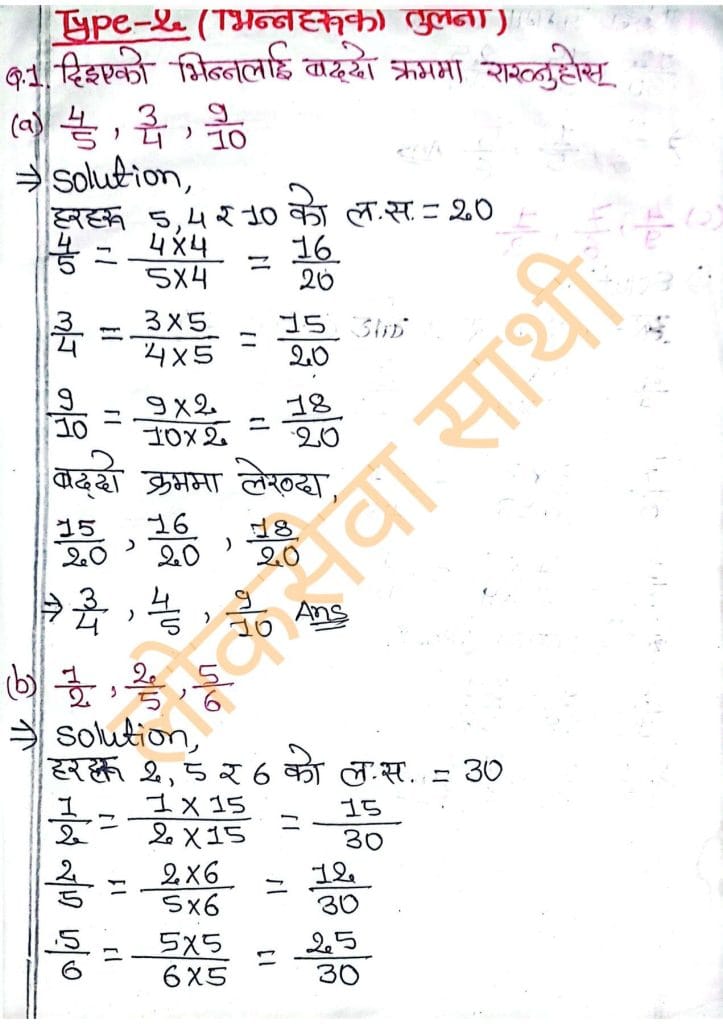 Type-2 (भिन्नहरूको तुलना)
Q.1. दिइएको भिन्नलाई बढ्दो क्रममा राख्नुहोस्
(a) 4/5 , 3/4 , 9/10
⇒ Solution,
हरहरू 5, 4 र 10 को ल.स. = 20
4/5 = 4×4/5×4 = 16/20
3/4 = 3×5/4×5 = 15/20
9/10 = 9×2/10×2 = 18/20
बढ्दो क्रममा लेख्दा,
15/20 , 16/20 , 18/20
⇒ 3/4 , 4/5 , 9/10 Ans
(b) 1/2 , 2/5 , 5/6
⇒ Solution,
हरहरू 2, 5 र 6 को ल.स. = 30
1/2 = 1×15/2×15 = 15/30
2/5 = 2×6/5×6 = 12/30
5/6 = 5×5/6×5 = 25/30
लोकसेवा साथी